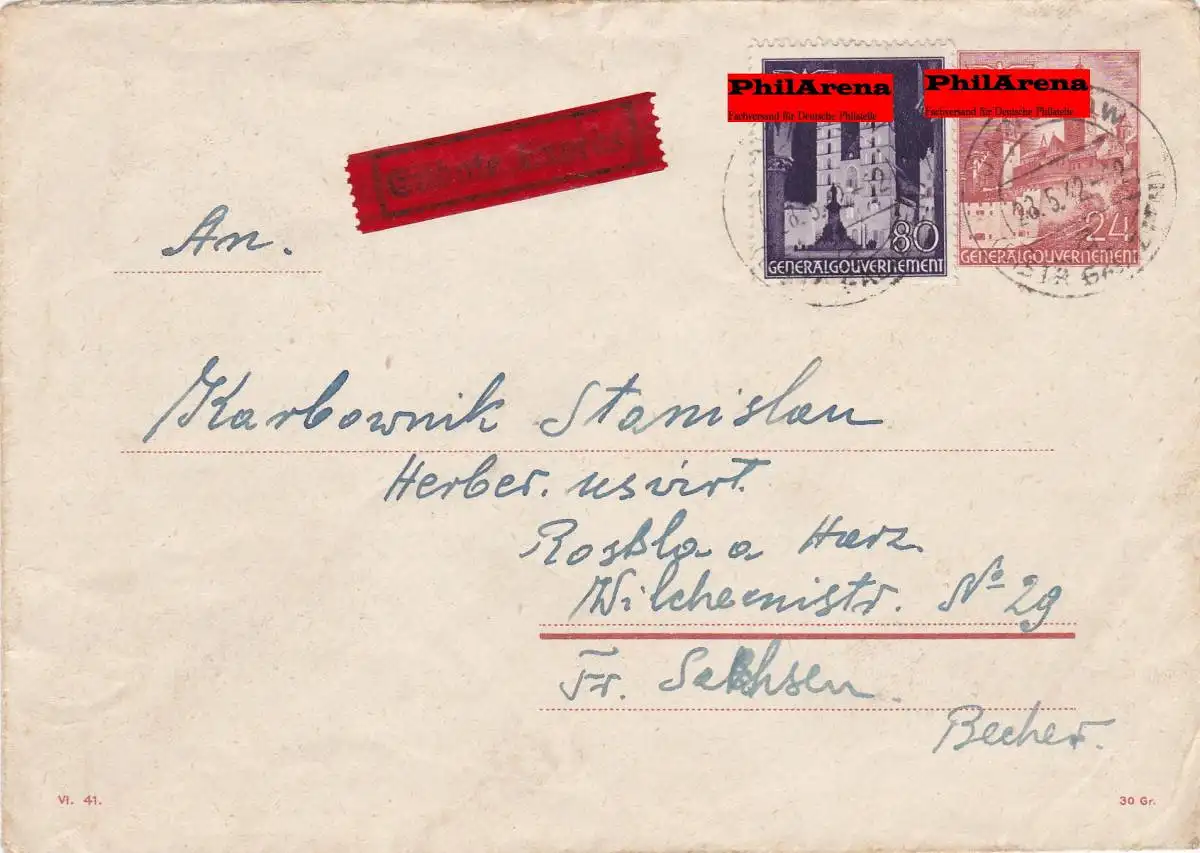 PhilArena
Fachversand für Deutsche Philatelie
PhilArena
Fachversand für Deutsche Philatelie
Eilbote Exprès
80
GENERALGOUVERNEMENT
24
GENERALGOUVERNEMENT
28.5.42
An.
Karbownik Stanislau
Herber. uswirt.
Rosbla a Harz.
Wilchemistr. No 29
Fr. Sachsen
Becher.
VI. 41.
30 Gr.